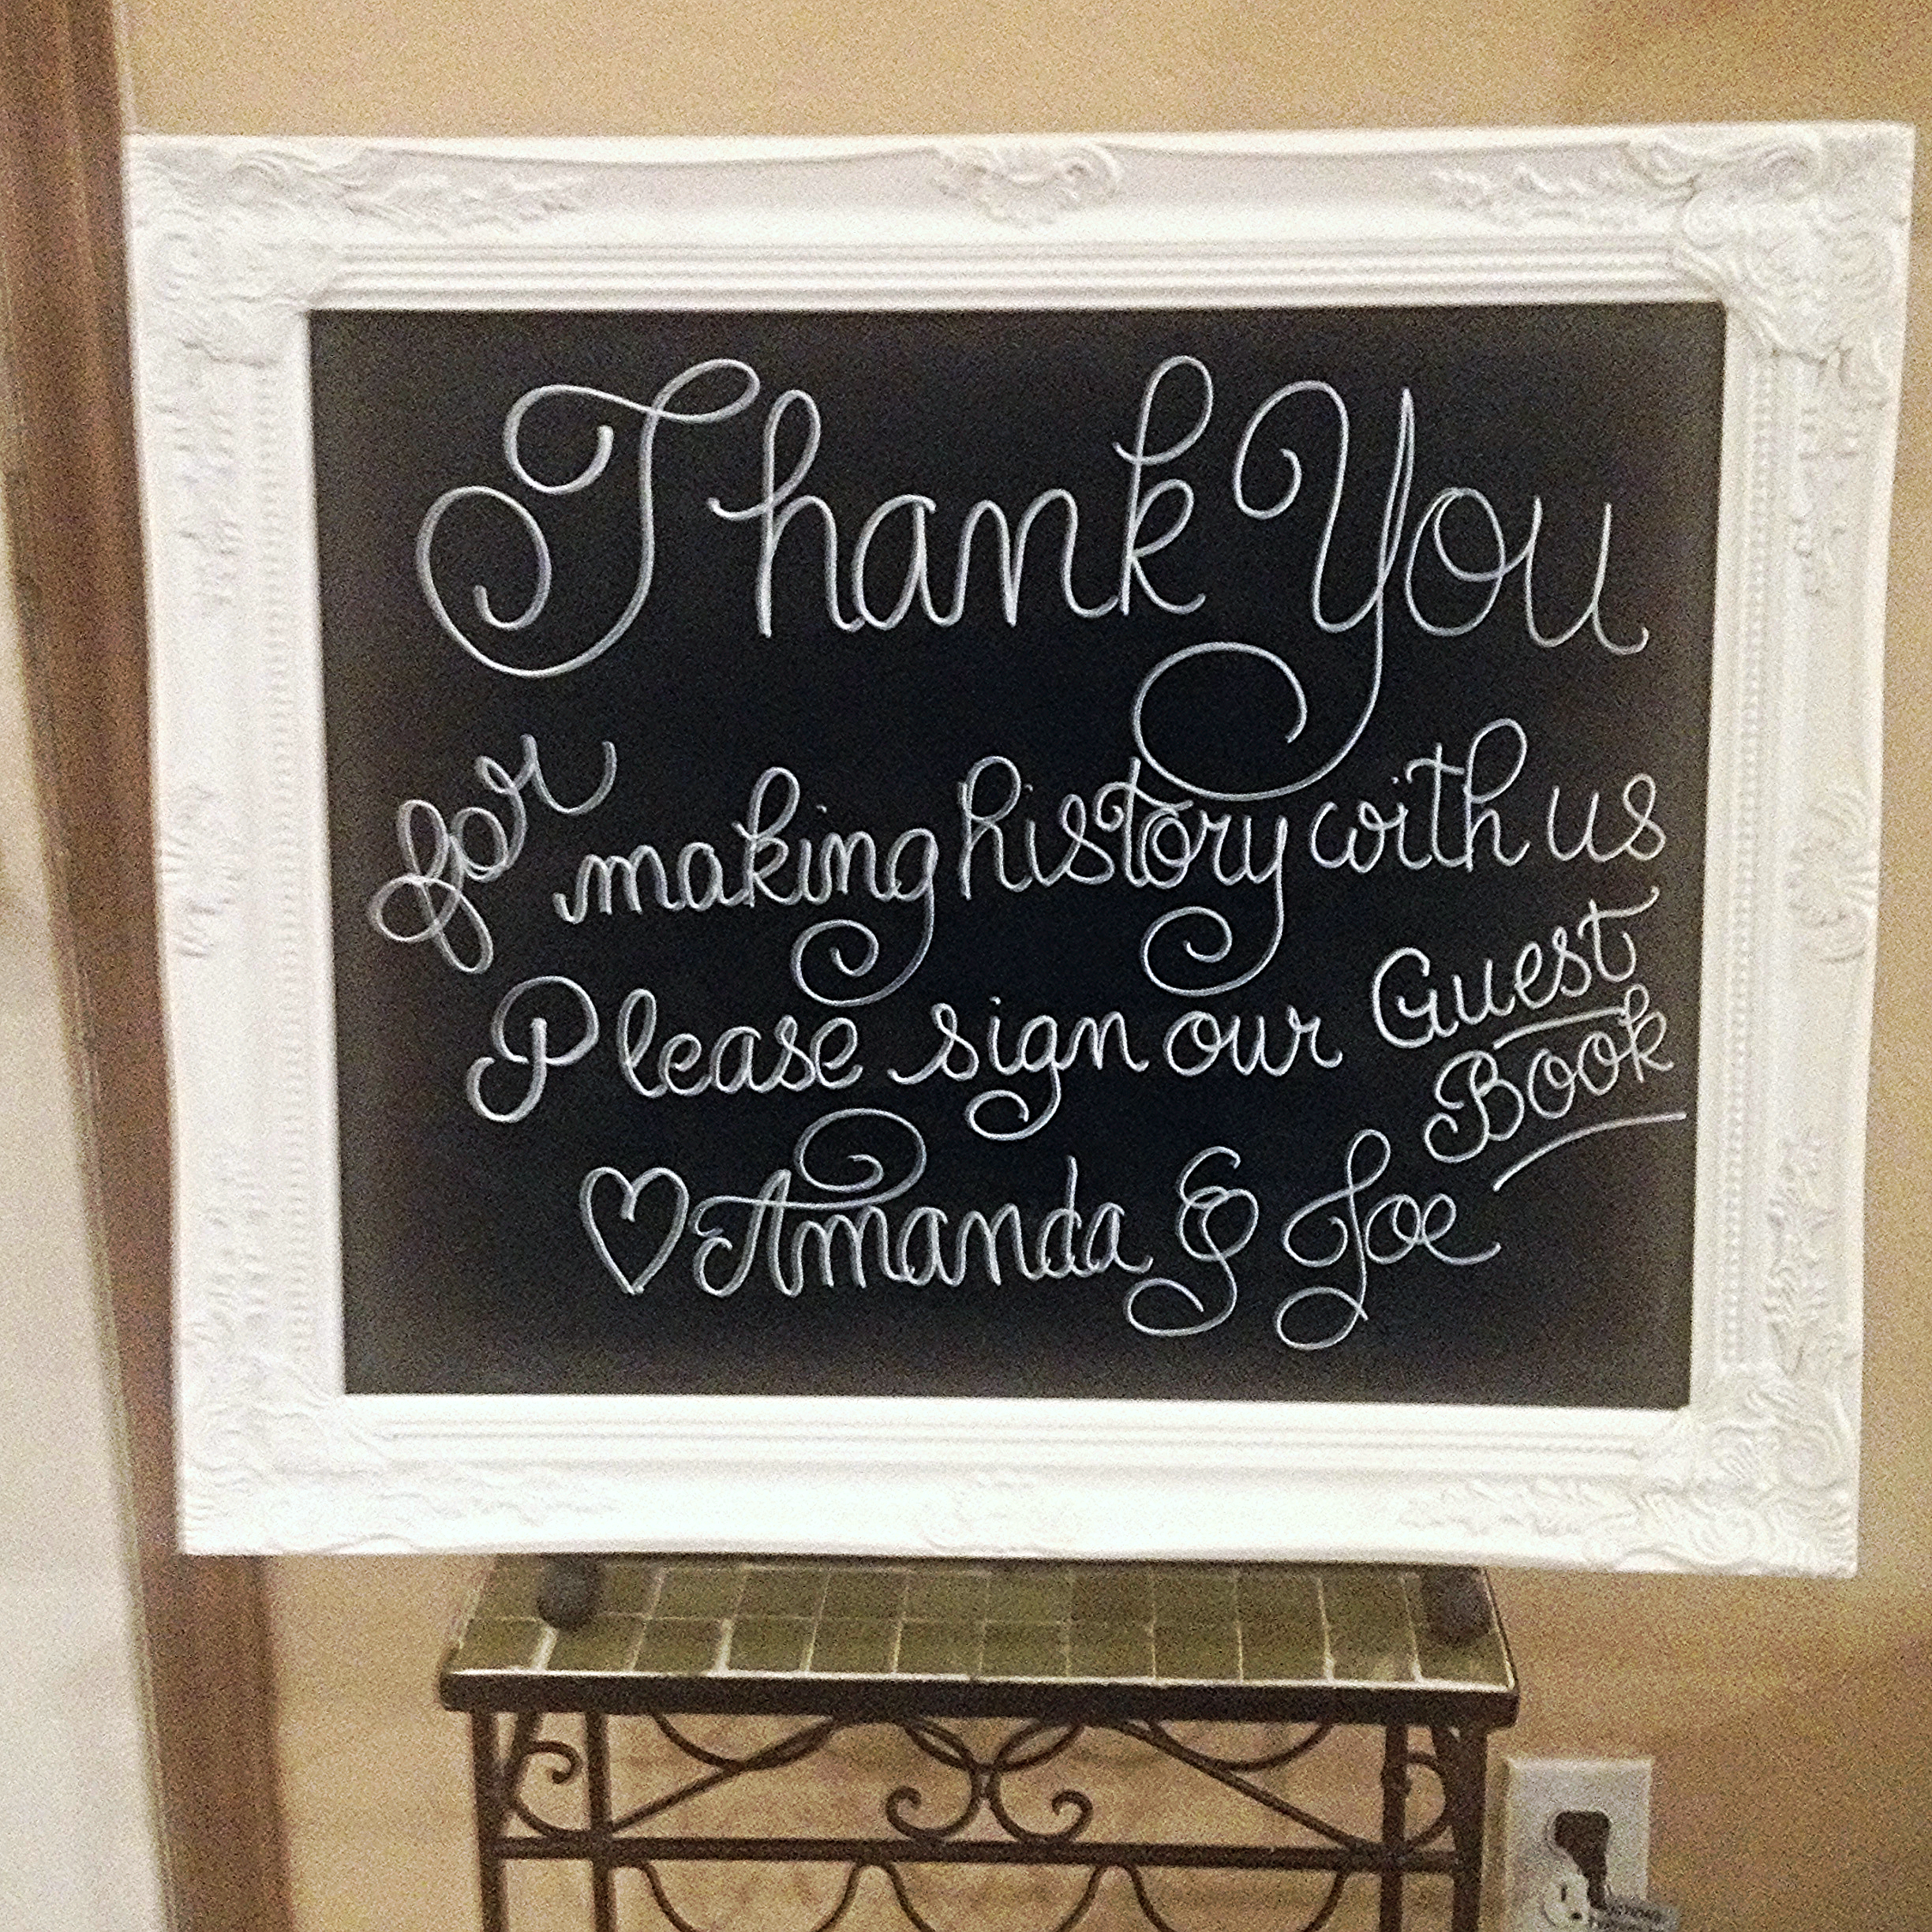 Thank You
for making history with us
Please sign our Guest
Book
♡ Amanda & Joe